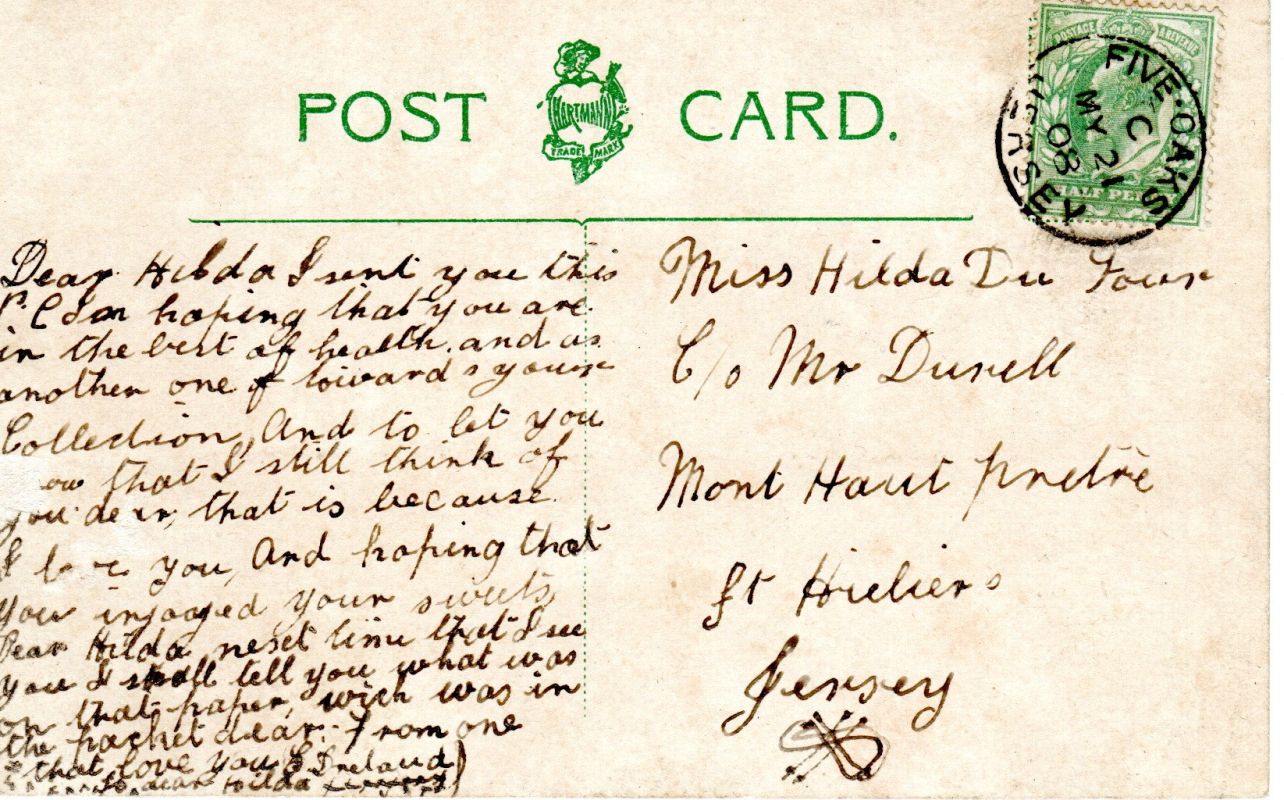 POST CARD.
HARTMANN
TRADE MARK
POSTAGE & REVENUE
HALF PE
FIVE·OAKS
C
MY 21
08
JERSEY
Dear Hilda I sent you this
P.C hoping that you are
in the best of health. and as
another one towards your
Collection, And to let you
ow that I still think of
you dear, that is because
I love you, And hoping that
you injoayed your sweets,
Dear Hilda nesct time that I see
you I shall tell you what was
on that paper, wich was in
the packet dear. From one
that love you E Ireland
to dear Hilda
Miss Hilda Du Four
C/o Mr Durell
Mont Haut prêtre
St Hieliers
Jersey